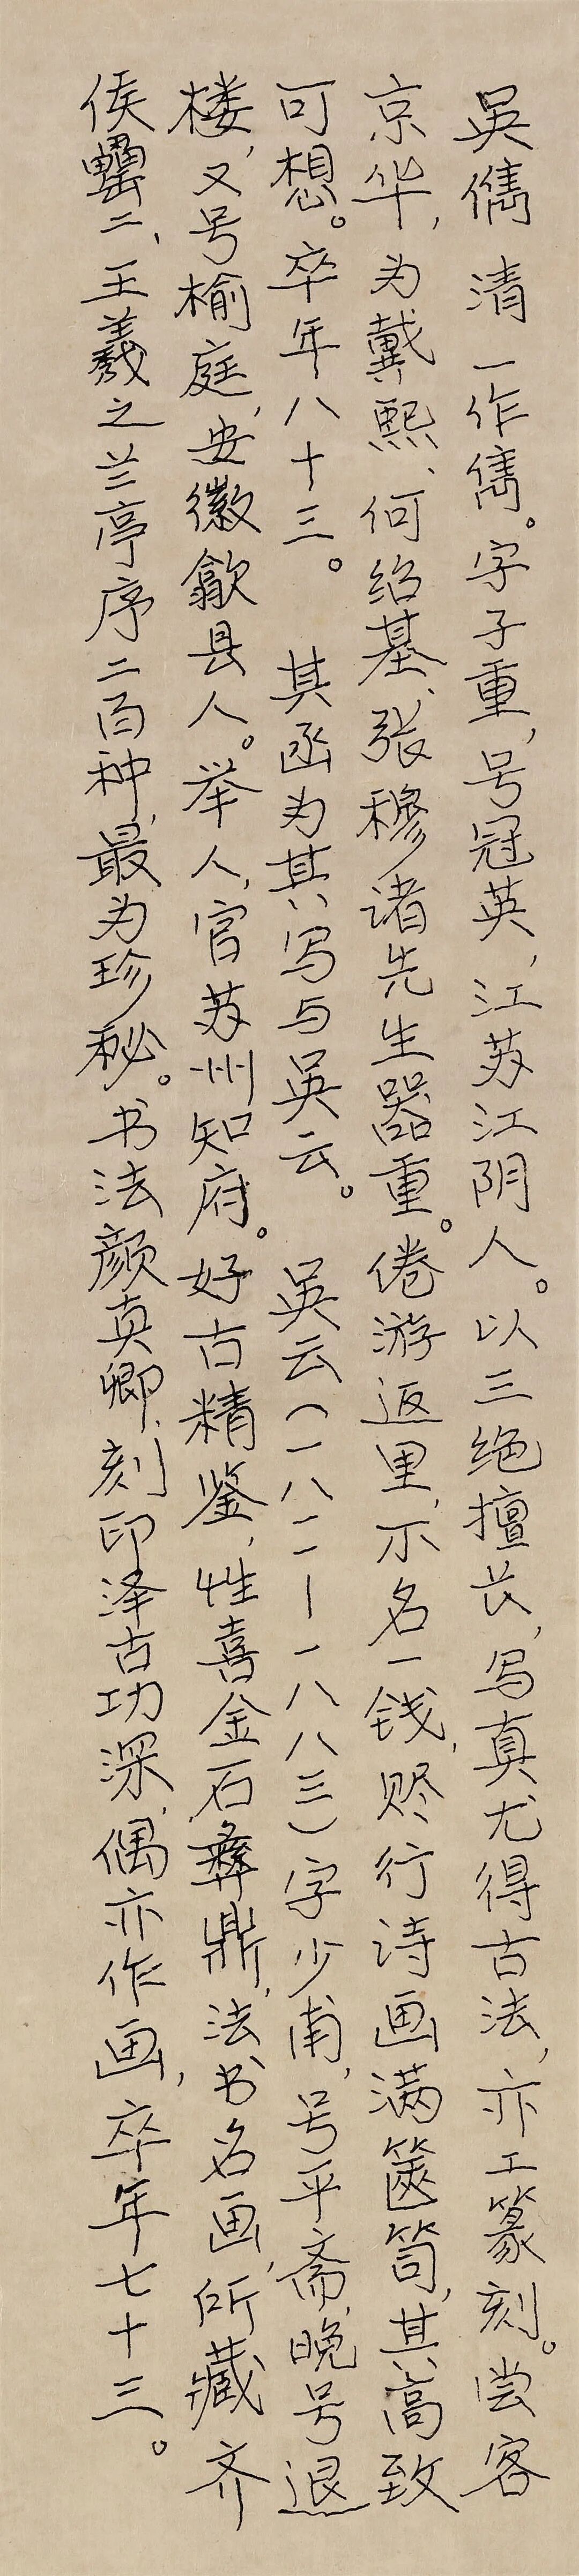 吴儁 清 一作雋。字子重,号冠英,江苏江阴人。以三绝擅长,写真尤得古法,亦工篆刻。尝客
京华,为戴熙、何绍基、张穆诸先生器重。倦游返里,不名一钱,赆行诗画满箧笥,其高致
可想。卒年八十三。 其函为其写与吴云。 吴云(一八一一—一八八三)字少甫,号平斋,晚号退
楼,又号榆庭,安徽歙县人。举人,官苏州知府。好古精鉴,性喜金石彝鼎,法书名画,所藏齐
侯罍二、王羲之兰亭序二百种,最为珍秘。书法颜真卿,刻印泽古功深,偶亦作画,卒年七十三。